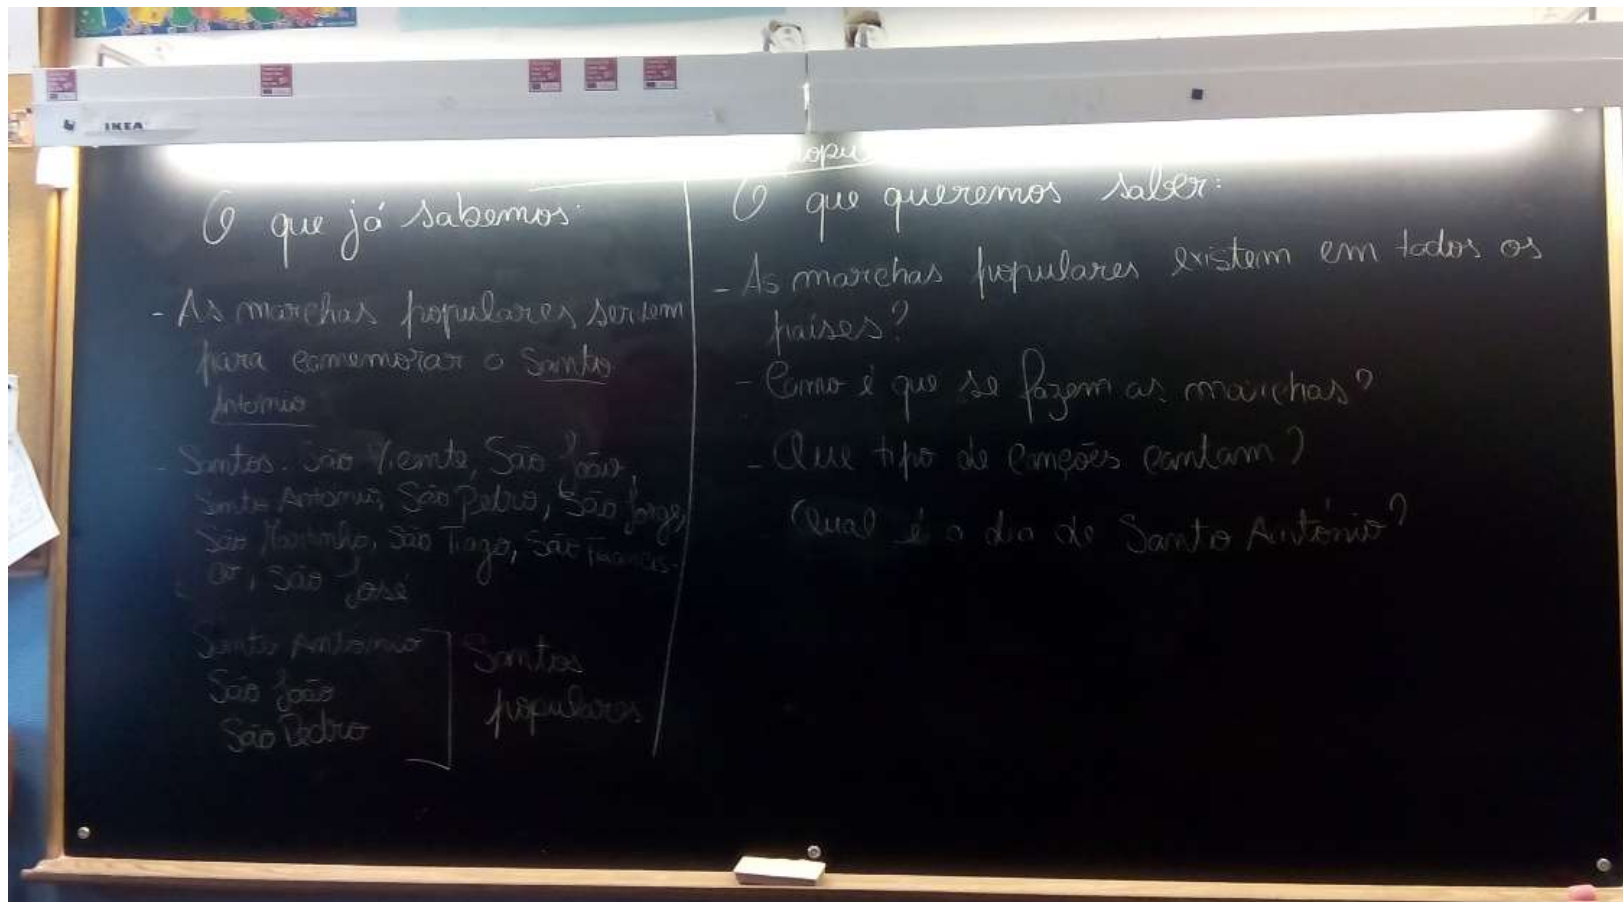 IKEA
popu
O que já sabemos:
- As marchas populares servem
para comemorar o Santo
António
- Santos. São Vicente, São João,
Santo António, São Pedro, São Jorge,
São Martinho, São Tiago, São Francis-
co, São José
Santo António
São João
São Pedro
Santos
populares
O que queremos saber:
- As marchas populares existem em todos os
países?
- Como é que se fazem as marchas?
- Que tipo de canções cantam?
Qual é o dia de Santo António?